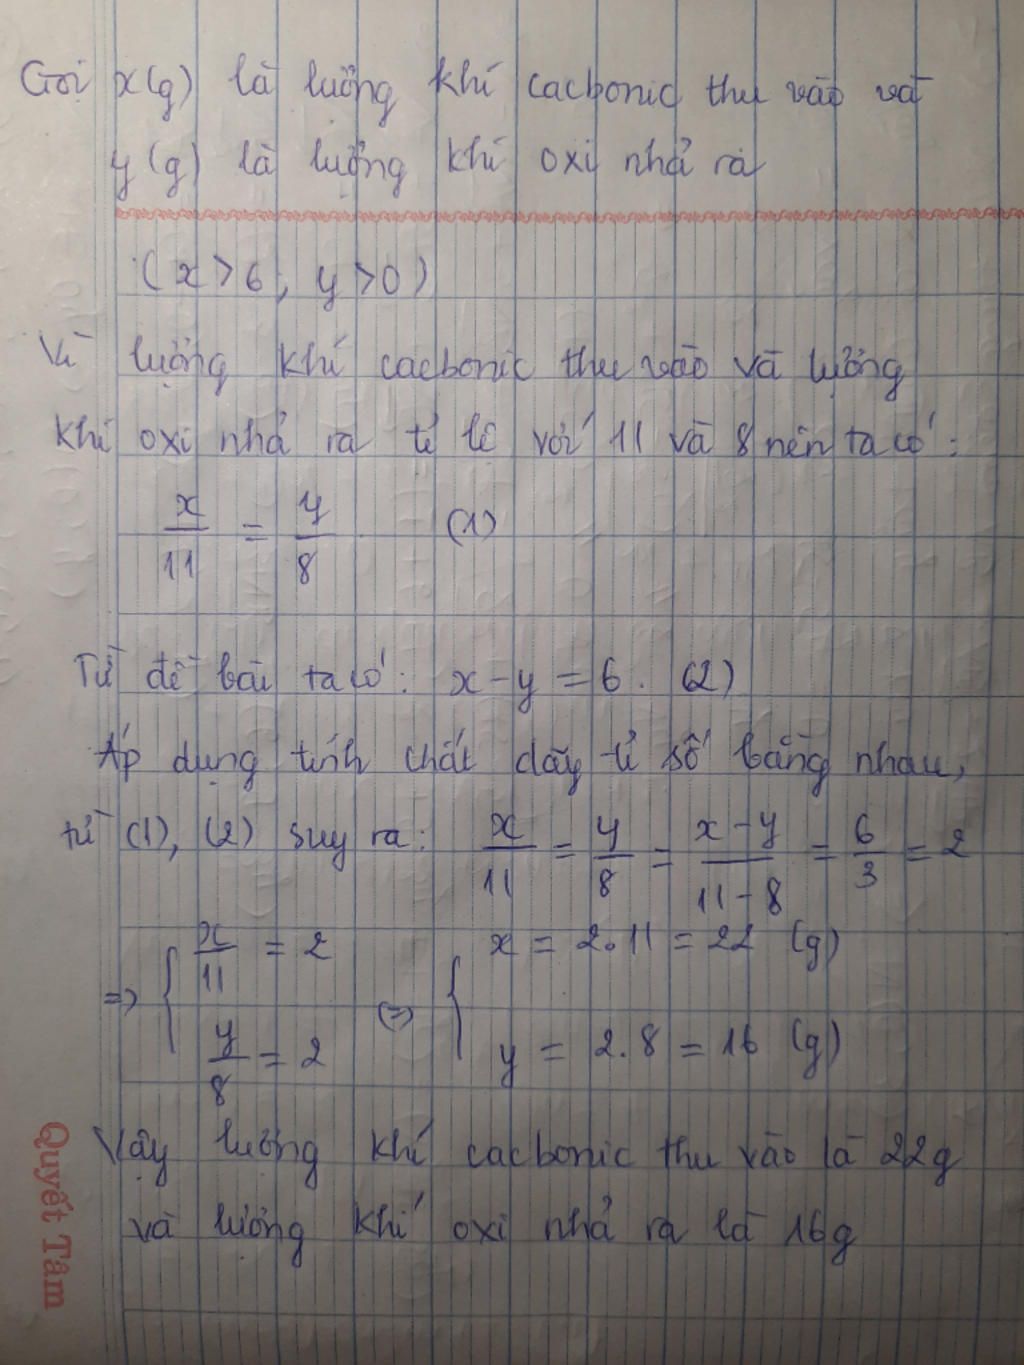 Gọi x(g) là lượng khí cacbonic thu vào và
y(g) là lượng khí oxi nhả ra
(x > 6; y > 0)
Vì lượng khí cacbonic thu vào và lượng
khí oxi nhả ra tỉ lệ với 11 và 8 nên ta có:
x/11 = y/8 (1)
Từ đề bài ta có: x - y = 6. (2)
Áp dụng tính chất dãy tỉ số bằng nhau,
từ (1), (2) suy ra: x/11 = y/8 = (x - y)/(11 - 8) = 6/3 = 2
=> { x/11 = 2 (=) { x = 2.11 = 22 (g)
y/8 = 2 y = 2.8 = 16 (g)
Vậy lượng khí cacbonic thu vào là 22g
và lượng khí oxi nhả ra là 16g
Quyết Tâm